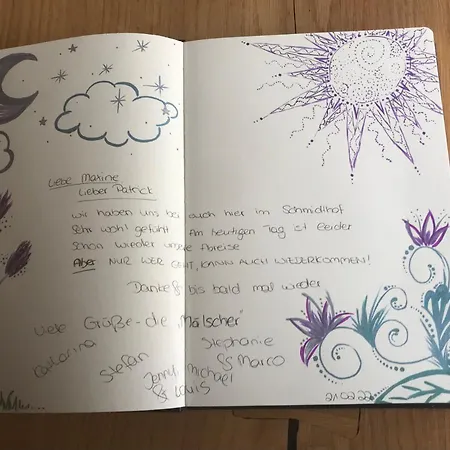 Liebe Martine
Lieber Patrick
wir haben uns bei euch hier im Schmidlhof
Sehr wohl gefühlt. Am heutigen Tag ist leider
schon wieder unsere Abreise
Aber NUR WER GEHT, KANN AUCH WIEDERKOMMEN!
Danke & bis bald mal wieder
Viele Grüße - die „Malscher"
Katharina Stefan Stephanie
& Marco
Jenny, Michael
& Louis
21.02.22